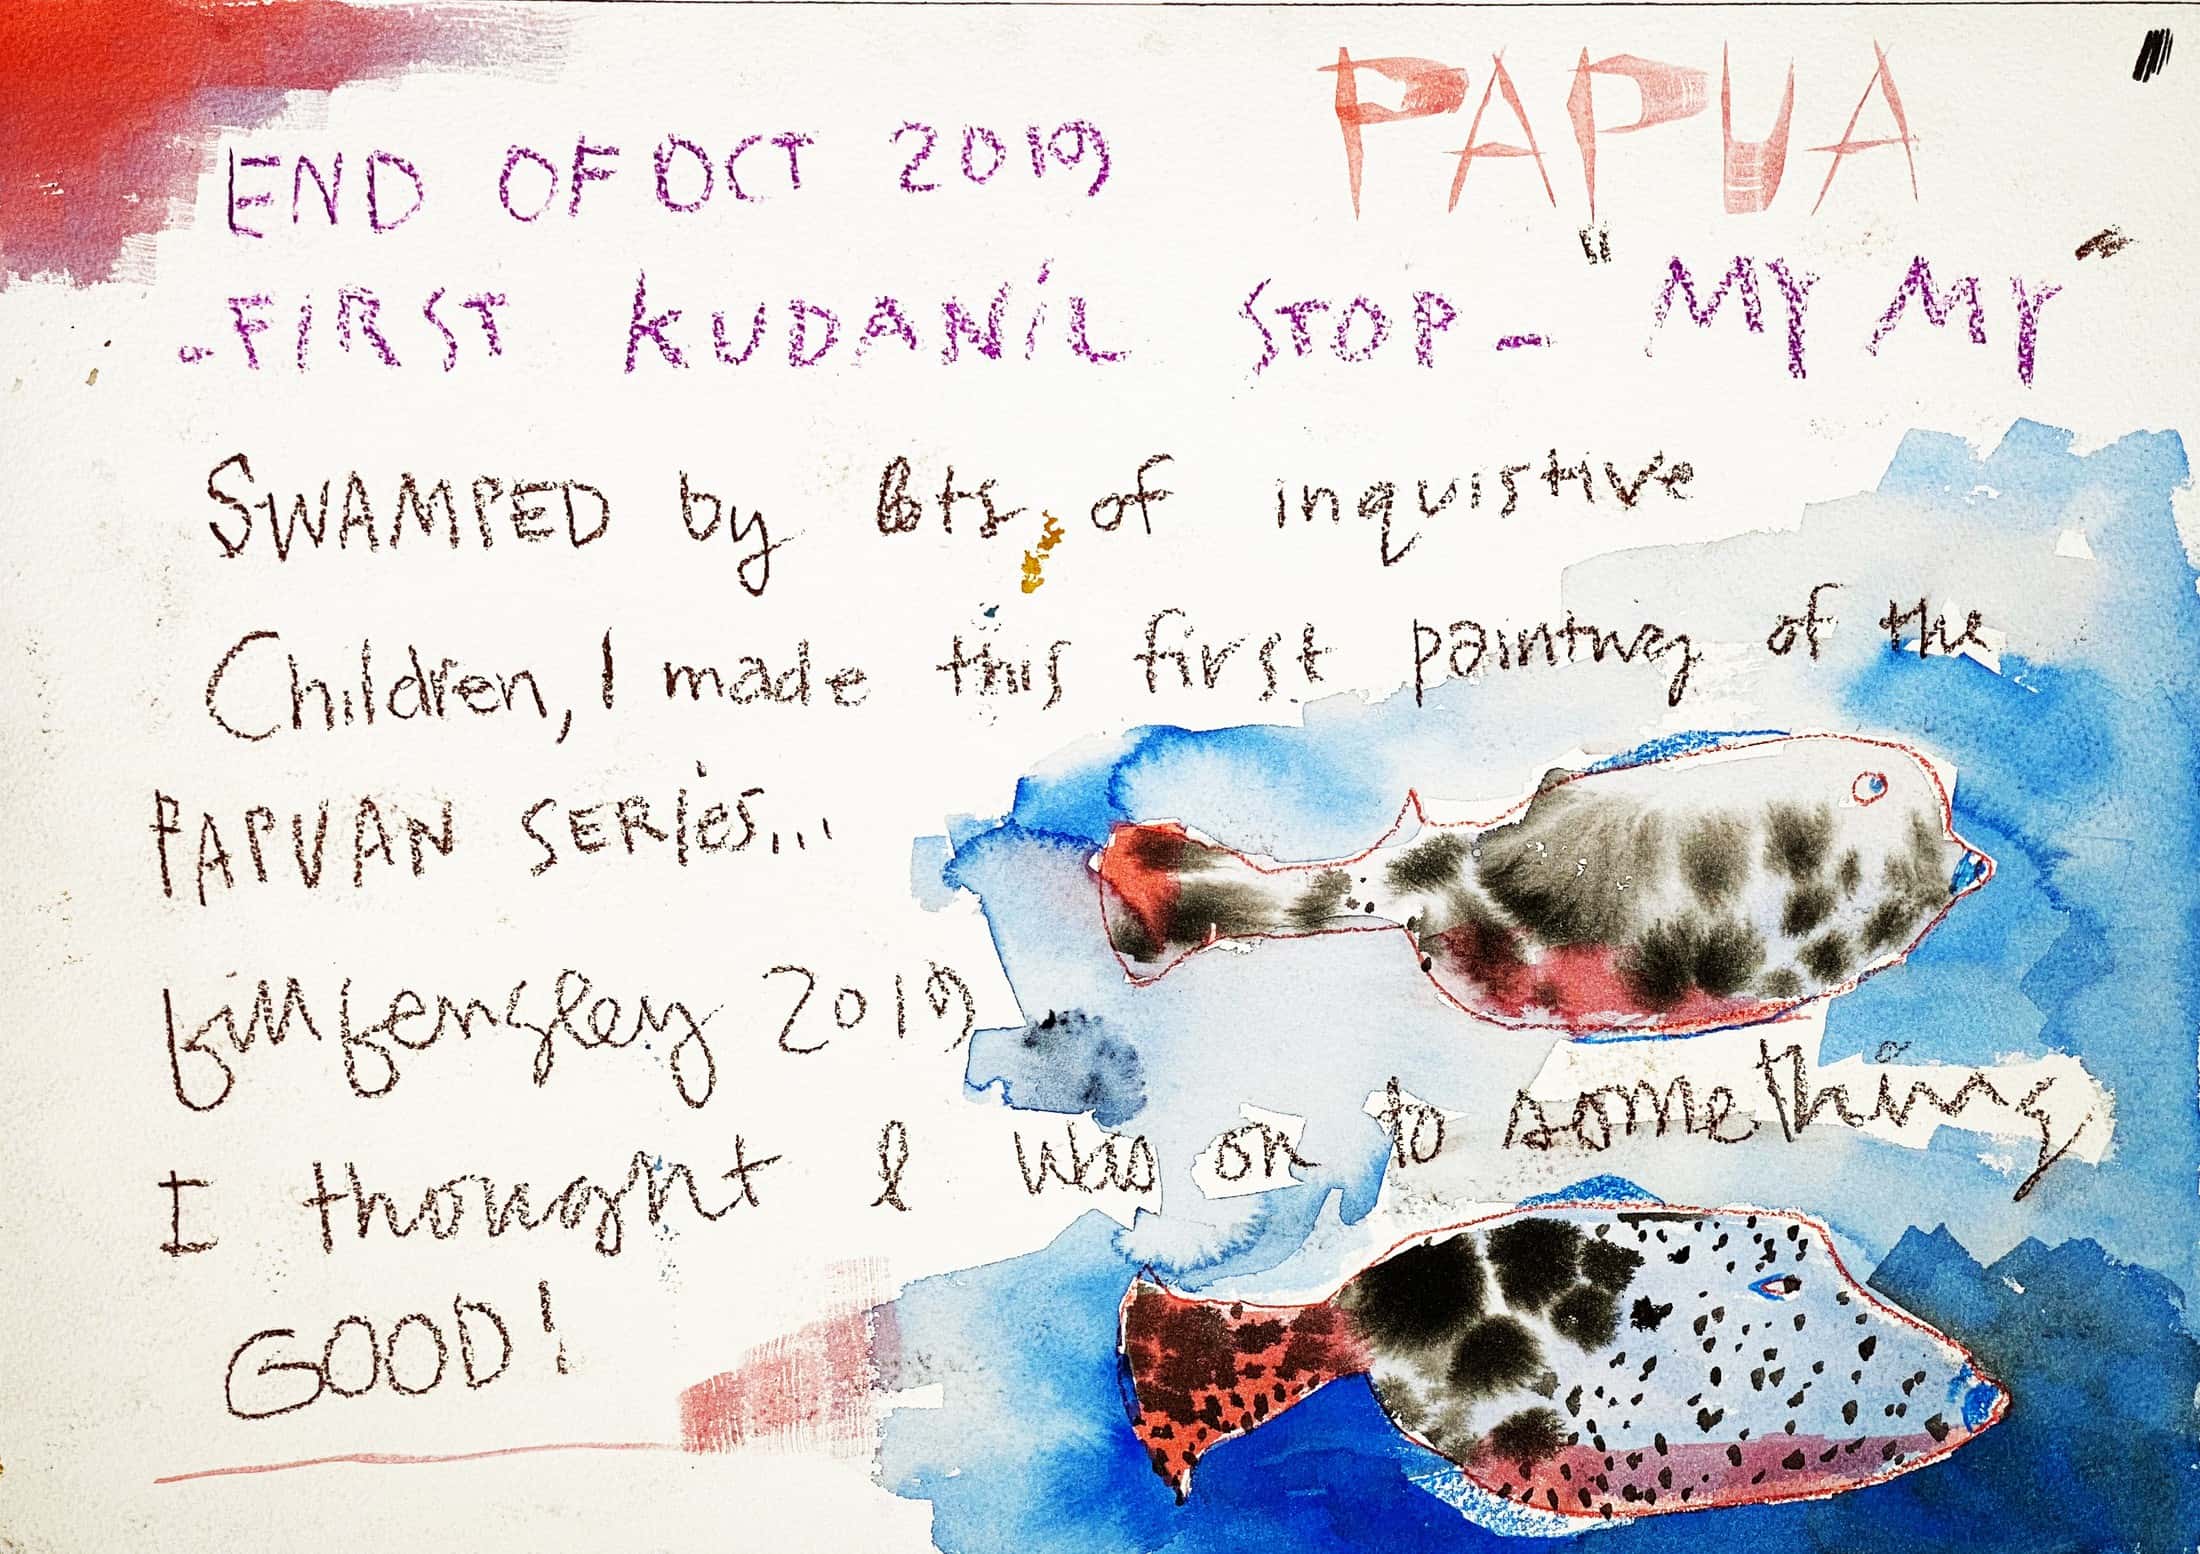 PAPUA
END OF OCT 2019
-FIRST KUDANiL STOP- "MY MY"
SWAMPED by lots of inquistive
Children, I made this first painting of the
PAPUAN SERIES...
billbensley 2019
I thought I was on to something
GOOD!